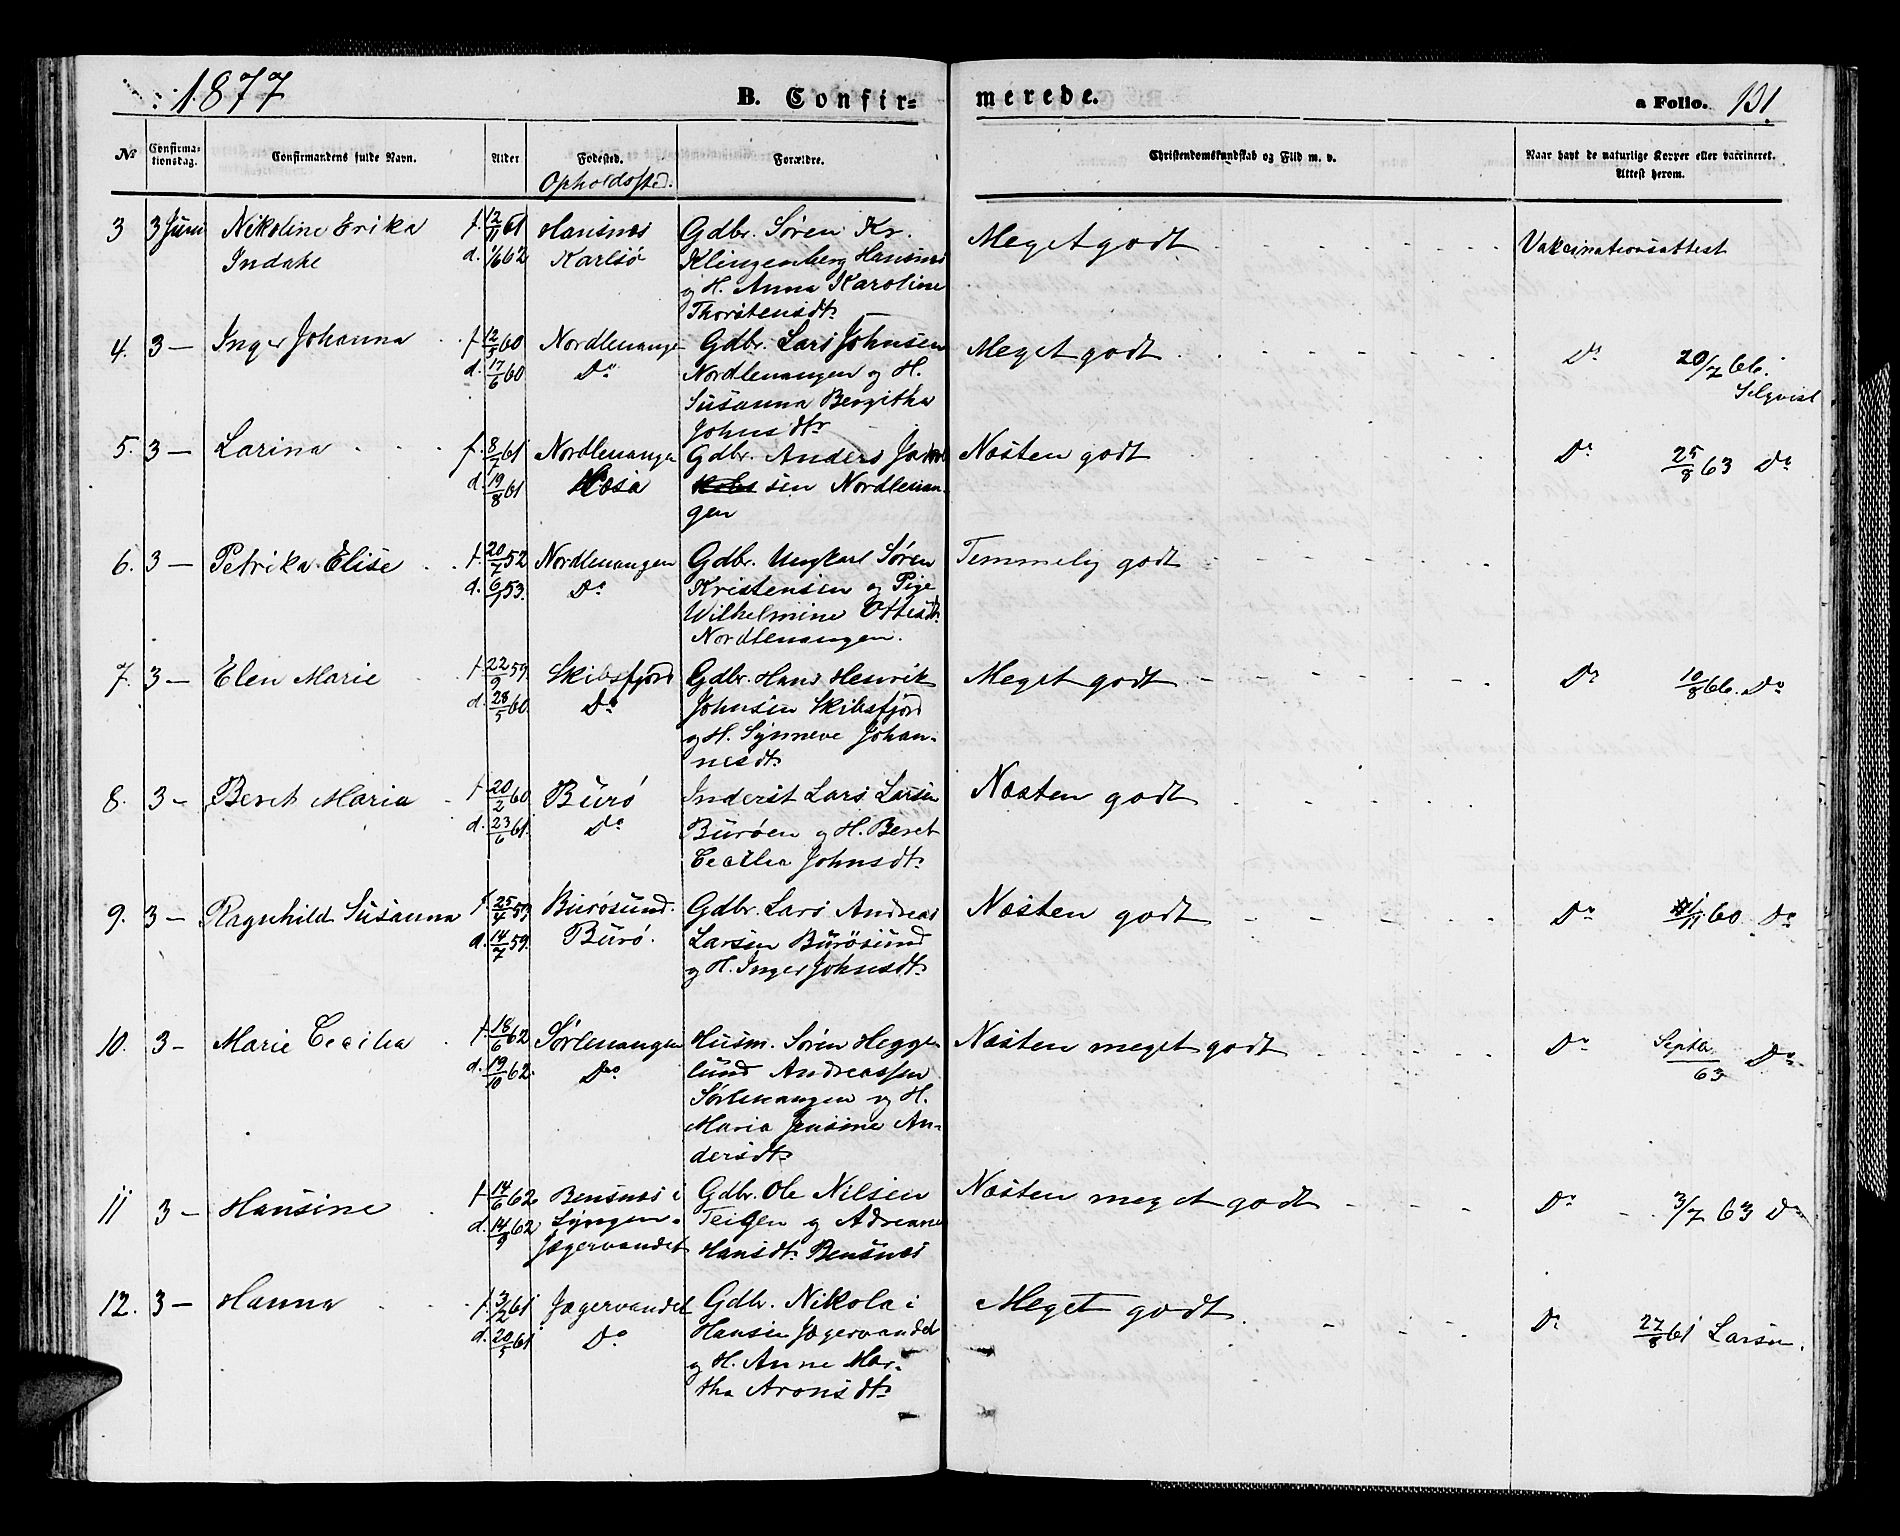 1877
B. Confir-
merede.
a Folio. 131.
No
Confirma-
tionsdag.
Confirmandens fulde Navn.
Alder
Fødested.
Opholdssted.
Forældre.
Christendomskundskab og Flid m. v.
Naar havt de naturlige Kopper eller vaccineret.
Attest herom.
3 3 Juni Nikoline Erika f. 12/11 61 Hansnæs Gdbr. Søren Kr. Meget godt Vakcinationsattest
Indake d. 1/6 62 Karlsö Klingenberg Hansnæs
og H. Anna Karoline
Thorstensdtr
4. 3 — Inger Johanna f. 12/5 60 Nordlenangen Gdbr. Lars Johnsen Meget godt Do 20/7 66.
d. 17/6 60 Do Nordlenangen og H. Selqvist
Susanna Bergitha
Johnsdtr
5. 3 — Larina f. 8/7 61 Nordlenangen Gdbr. Anders Næsten godt Do 25/8 63 Do
d. 19/8 61 sen Nordlenan-
gen
6. 3 — Petrika Elise f. 20/7 52 Nordlenangen Gdbr. Ungkarl Søren Temmelig godt
d. 6/7 53. Do Kristensen og Pige
Wilhelmine Ottesdtr
Nordlenangen.
7. 3 — Elen Marie f. 22/9 59. Skibsfjord Gdbr. Hans Henrik Meget godt Do 10/8 66. Do
d. 28/5 60. Do Johnsen Skibsfjord
og H. Synneve Johan-
nesdtr
8. 3 — Beret Maria f. 20/2 60. Burö Inderst Lars Larsen Næsten godt
d. 23/6 61. Do Buröen og H. Beret
Cecilia Johnsdtr
9. 3 — Ragnhild Susanna f. 25/4 59 Burösund. Gdbr. Lars Andreas Næsten godt Do 1/11 60. Do
d. 14/7 59. Burö. Larsen Burösund
og H. Inger Johnsdtr
10. 3 — Marie Cecilia f. 18/6 62 Sørlenangen Husm. Søren Hegge- Næsten meget godt Do Septbr 63 Do
d. 19/10 62. Do lund Andreassen
Sørlenangen og H.
Maria Jensine An-
dersdtr
11 3 — Hansine f. 14/6 62 Bensnæs i Gdbr. Ole Nilsen Næsten meget godt Do 3/7 63 Do
d. 14/9 62 Lyngen. Teigen og Adriane
Jægervandet Hansdtr. Bensnæs
12. 3 — Hanna f. 3/2 61 Jægervandet Gdbr. Nikolai Meget godt Do 27/8 61 Larsen.
d. 20/5 61 Do Hansen Jægervandet
og H. Anne Mar-
tha Aronsdtr